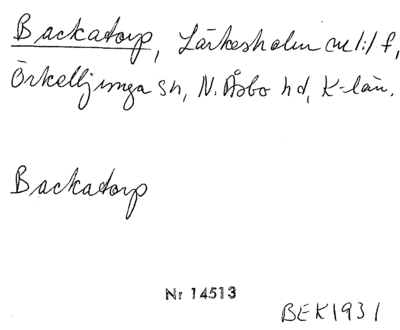 Backatorp, Lärkesholm melil f,
Örkelljunga sn, N. Åsbo hd, K-län.
Backatorp
Nr 14513
BEK 1931